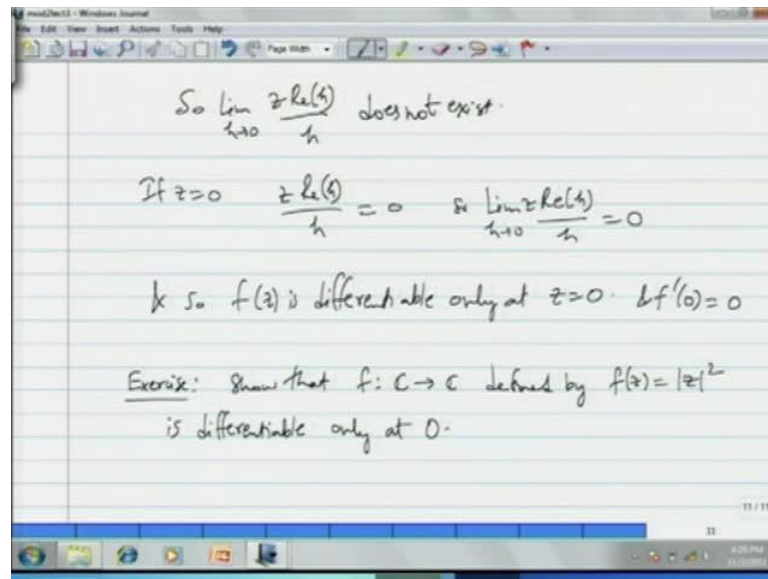 mod2lect3 - Windows Journal
File Edit View Insert Actions Tools Help
Page Width
So Lim h→0 z Re(h)/h does not exist.
If z=0 z Re(h)/h = 0 so Lim h→0 z Re(h)/h = 0
& so f(z) is differentiable only at z=0. & f'(0)=0
Exercise: Show that f: C → C defined by f(z) = |z|²
is differentiable only at 0.
11 / 11
33
4:25 PM